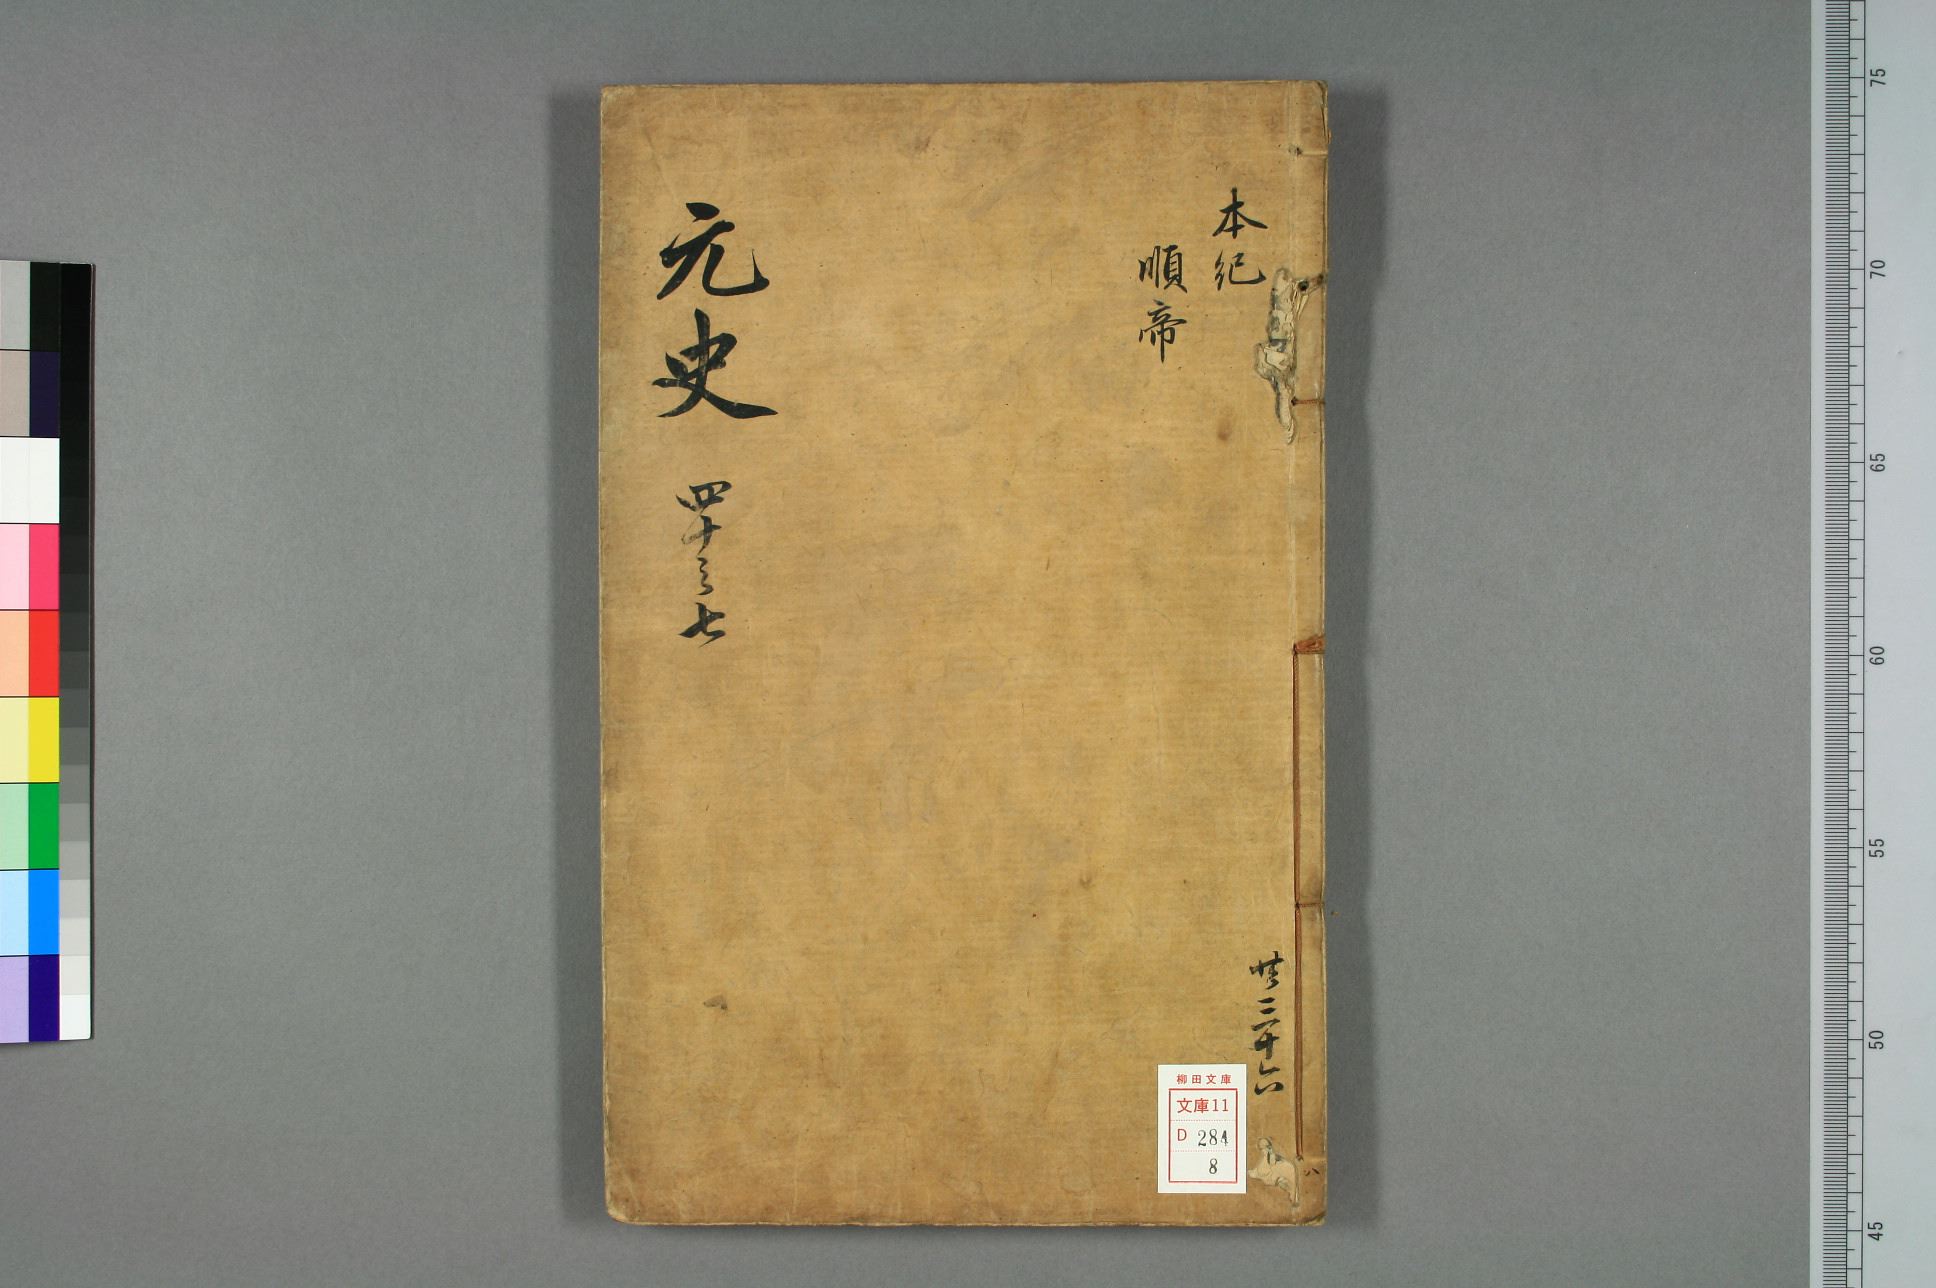 本紀
順帝
元史 四十之七
共三十六
八
柳田文庫
文庫11
D 284
8
75
70
65
60
55
50
45